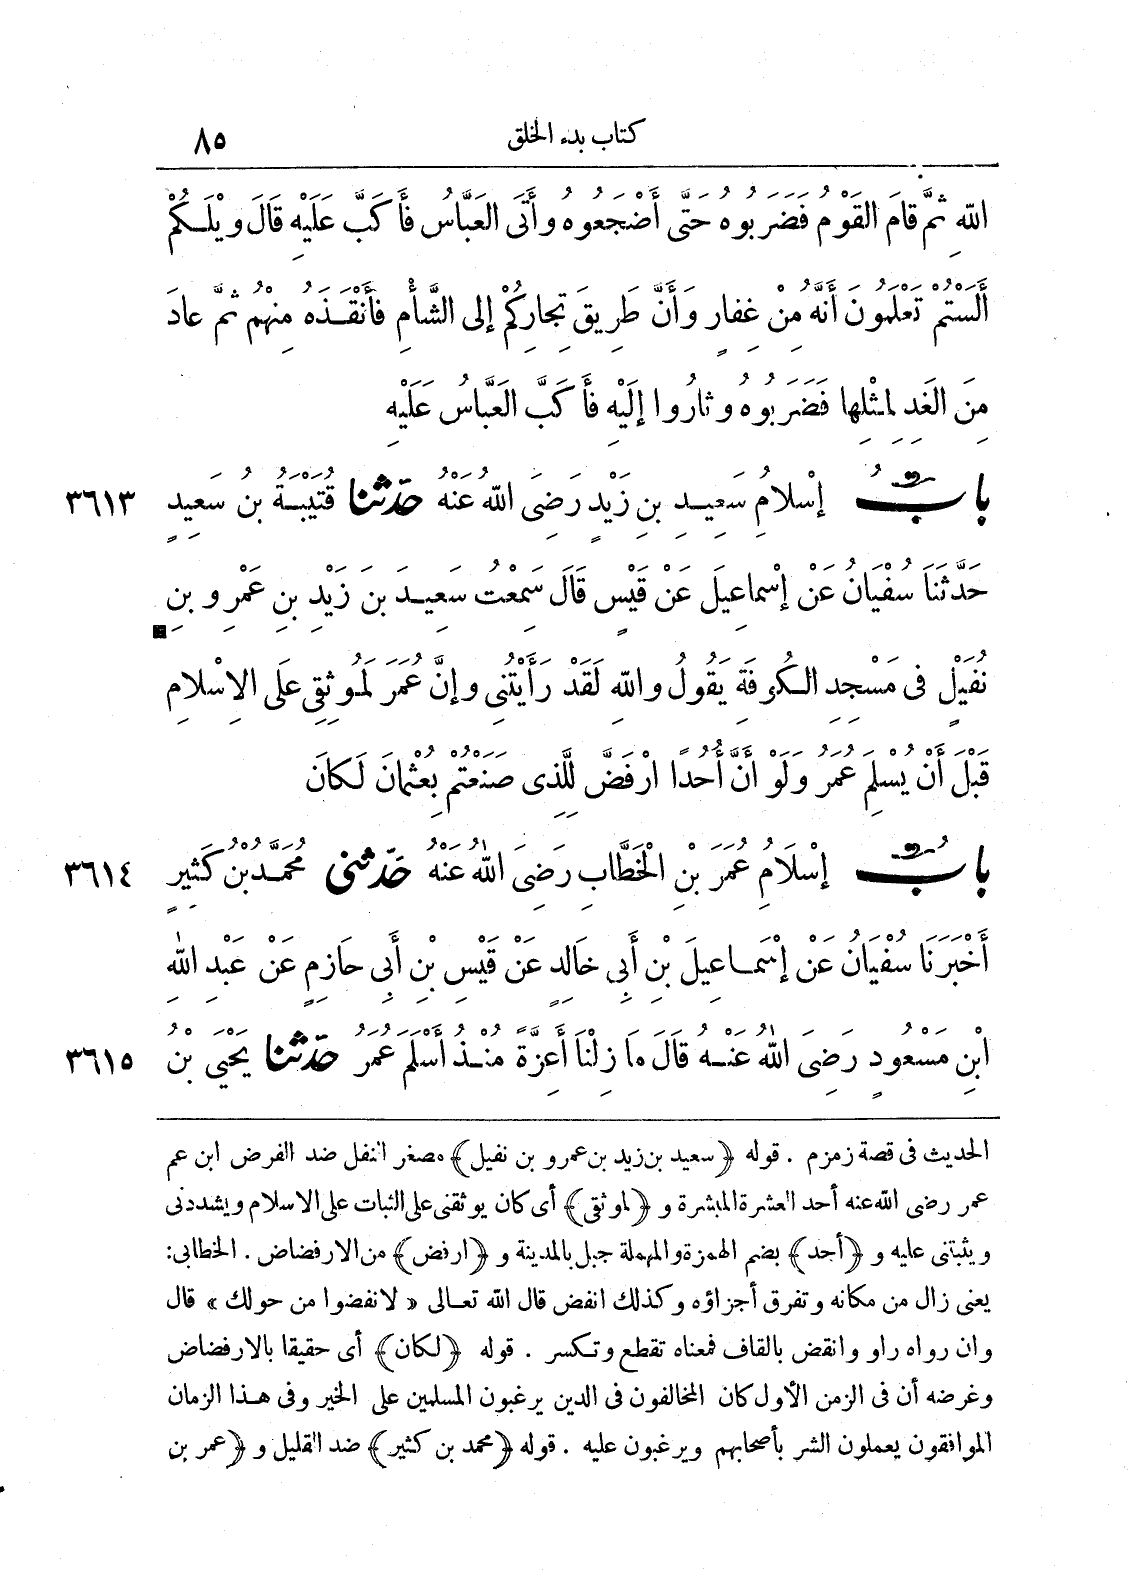 كتاب بدء الخلق ٨٥
اللهِ ثُمَّ قامَ القَوْمُ فَضَرَبُوهُ حَتَّى أَضْجَعُوهُ وأَتَى العَبَّاسُ فَأَكَبَّ عَلَيْهِ قَالَ ويْلَكُمْ
أَلَسْتُمْ تَعْلَمُونَ أَنَّهُ مِنْ غِفارٍ وَأَنَّ طَرِيقَ تِجارِكُمْ إلى الشَّأْمِ فأَنْقَذَهُ مِنْهُمْ ثُمَّ عادَ
مِنَ الغَدِ لِمِثْلِها فَضَرَبُوهُ وثارُوا إلَيْهِ فَأَكَبَّ العَبَّاسُ عَلَيْهِ
بابُ إسْلامُ سَعِيدِ بنِ زَيْدٍ رَضِيَ اللهُ عَنْهُ حدّثنا قُتَيْبَةُ بنُ سَعِيدٍ ٣٦١٣
حَدَّثَنَا سُفْيَانُ عَنْ إسْماعِيلَ عَنْ قَيْسٍ قَالَ سَمِعْتُ سَعِيدَ بنَ زَيْدِ بنِ عَمْرِو بنِ
نُفَيْلٍ فى مَسْجِدِ الكُوفَةِ يَقُولُ واللهِ لَقَدْ رَأَيْتُنِى وإنَّ عُمَرَ لَمُوثِقِى عَلَى الإِسْلامِ
قَبْلَ أَنْ يُسْلِمَ عُمَرُ وَلَوْ أَنَّ أُحُدًا ارْفَضَّ لِلَّذِى صَنَعْتُمْ بِعُثْمانَ لَكانَ
بابُ إسْلَامُ عُمَرَ بْنِ الخَطَّابِ رَضِيَ اللهُ عَنْهُ حدّثنى مُحَمَّدُ بنُ كَثِيرٍ ٣٦١٤
أَخْبَرَنَا سُفْيَانُ عَنْ إسْمَاعِيلَ بْنِ أَبِى خَالِدٍ عَنْ قَيْسِ بْنِ أَبِى حازِمٍ عَنْ عَبْدِ اللهِ
ابْنِ مَسْعُودٍ رَضِيَ اللهُ عَنْهُ قَالَ مَا زِلْنَا أَعِزَّةً مُنْذُ أَسْلَمَ عُمَرُ حدّثنا يَحْيَى بْنُ ٣٦١٥
الحديث فى قصة زمزم . قوله ﴿سعيد بن زيد بن عمرو بن نفيل﴾ مصغر النفل ضد الفرض ابن عم
عمر رضى الله عنه أحد العشرة المبشرة و ﴿لموثقى﴾ أى كان يوثقنى على الثبات على الاسلام ويشددنى
ويثبتنى عليه و ﴿أحد﴾ بضم الهمزة والمهملة جبل بالمدينة و ﴿ارفض﴾ من الارفضاض . الخطابى:
يعنى زال من مكانه وتفرق أجزاؤه وكذلك انفض قال الله تعالى « لانفضوا من حولك » قال
وان رواه راو وانقض بالقاف فمعناه تقطع وتكسر . قوله ﴿لكان﴾ أى حقيقا بالارفضاض
وغرضه أن فى الزمن الأول كان المخالفون فى الدين يرغبون المسلمين على الخير وفى هذا الزمان
الموافقون يعملون الشر بأصحابهم ويرغبون عليه . قوله ﴿محمد بن كثير﴾ ضد القليل و ﴿عمر بن